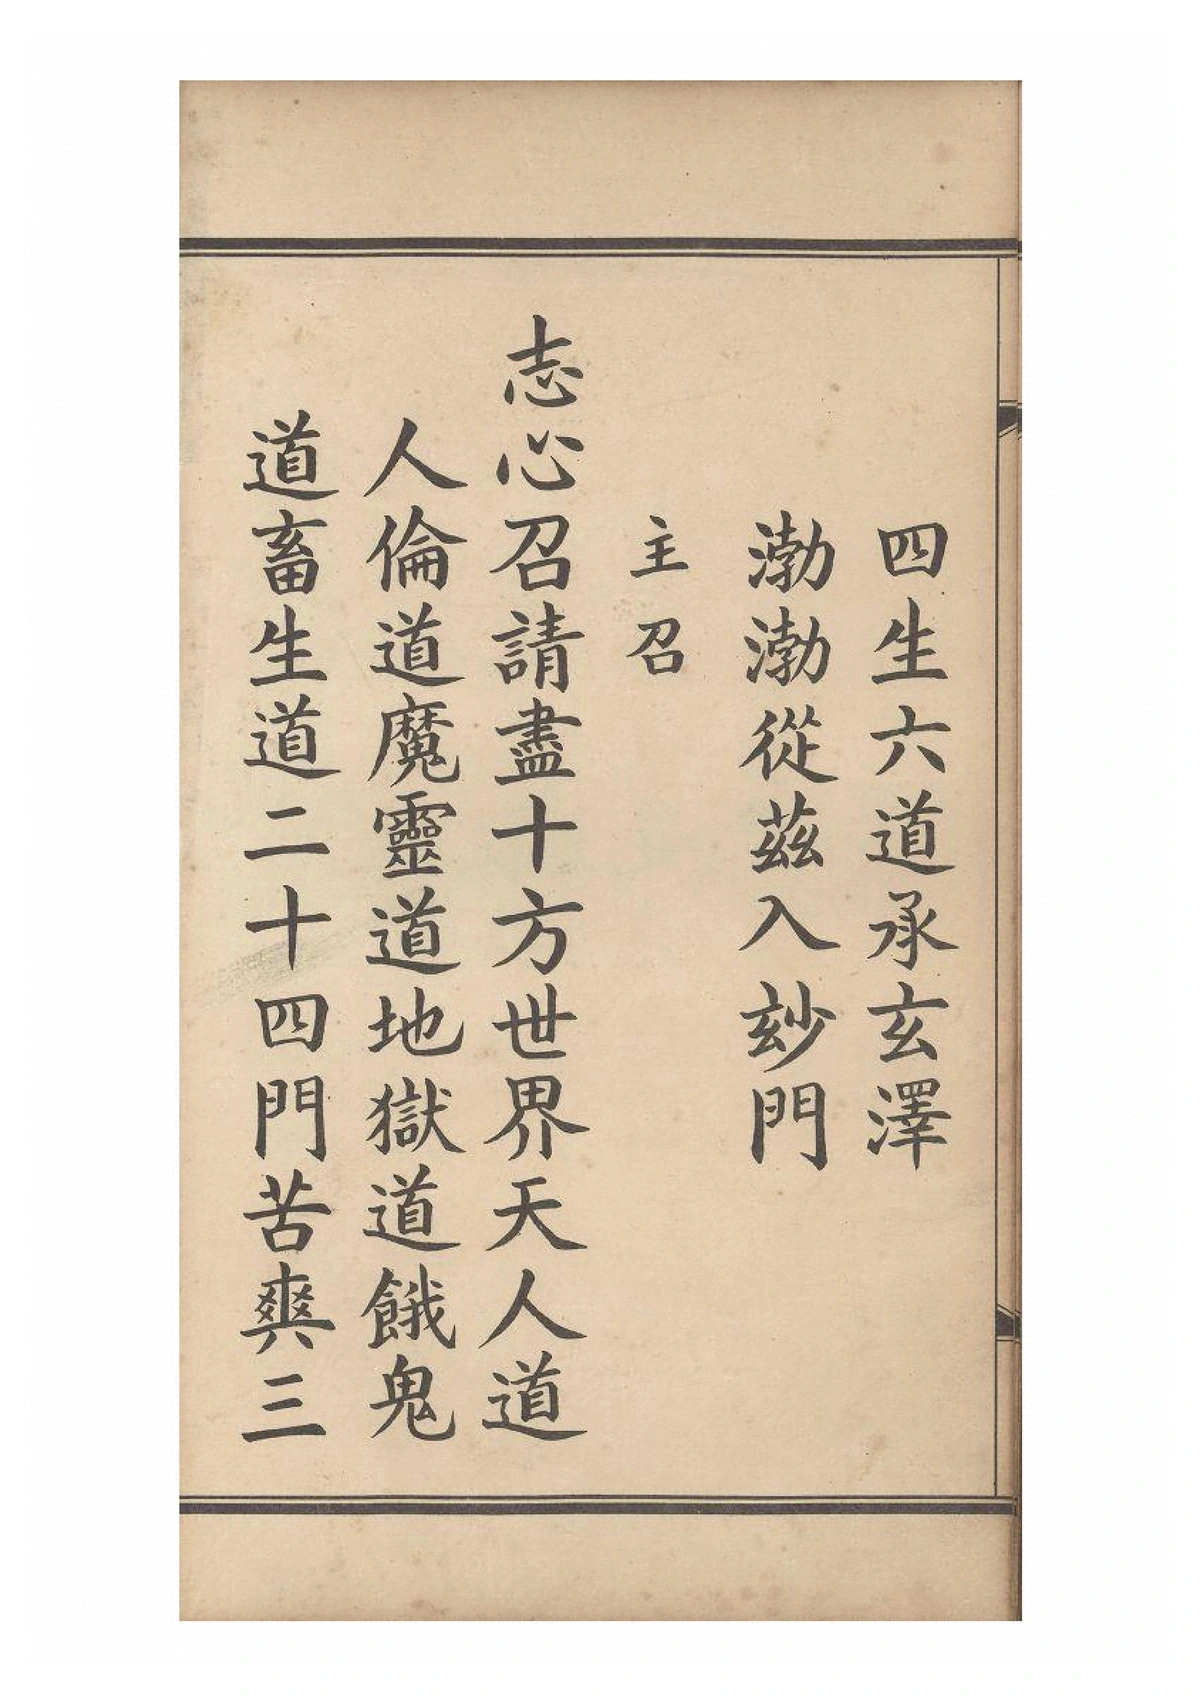 四生六道承玄澤
渤渤從茲入玅門
主召
志心召請盡十方世界天人道
人倫道魔靈道地獄道餓鬼
道畜生道二十四門苦爽三